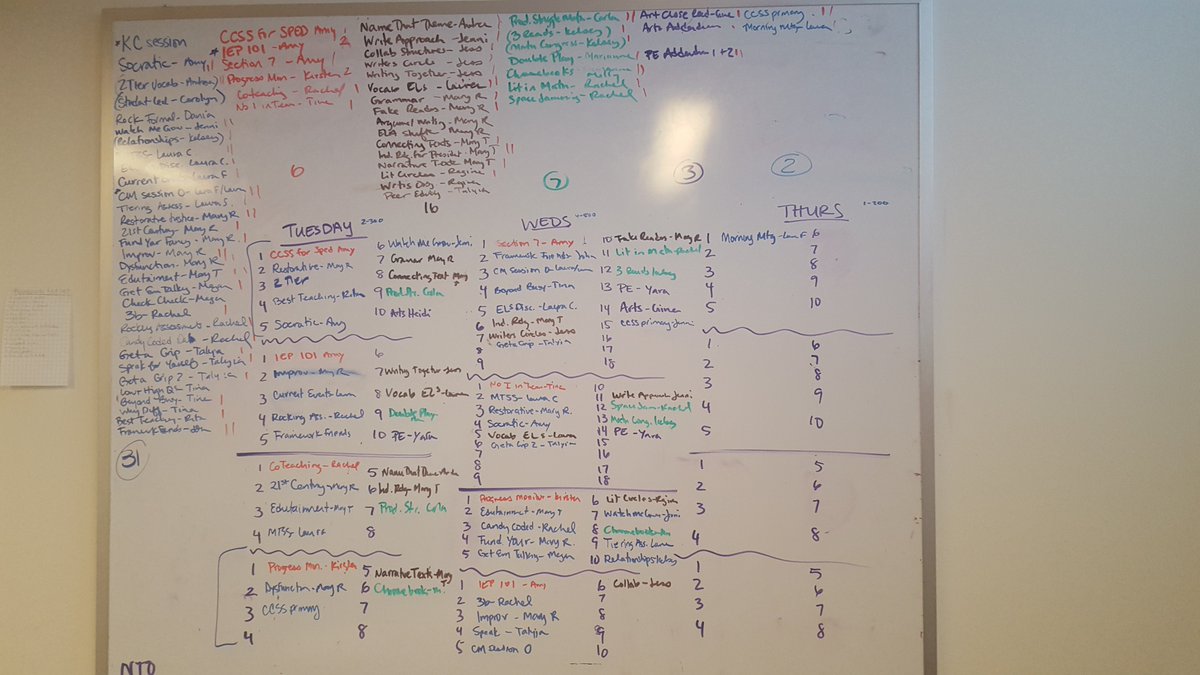 *KC session
Socratic - Amy
2 Tier Vocab - Andrea
(Student Led - Carolyn)
Rock Formal - Dania
Watch Me Grow - Jenni
(Relationships - Kelsey)
Laura C
Disc. Laura C.
Current Laura F
*CM session 0 - Laura F/Laura
Tiering Assess - Laura S.
Restorative Justice - Mary R
21st Century - Mary R
Fund Your Fancy - Mary R
Improv - Mary R
Dysfunction - Mary R
Edutainment - Mary T
Get Em Talking - Megan
Check Check - Megan
3b - Rachel
Rocking Assessments - Rachel
Candy Coded - Rachel
Get a Grip - Taliyia
Speak for Yourself - Taliyia
Get a Grip 2 - Taliyia
Low High Qs - Tina
Beyond Busy - Tina
Why Diff - Tina
Best Teaching - Rita
Framework Friends - John
31
CCSS for SPED Amy
*IEP 101 - Amy 2
Section 7 - Amy
Progress Mon - Kirsten 2
Coteaching - Rachel
No I in Team - Tina
6
Name That Theme - Andrea
Write Approach - Jenni
Collab Structures - Jess
Writers Circle - Jess
Writing Together - Jess
Vocab ELs - Lauren
Grammar - Mary R
Fake Reados - Mary R
Argument Writing - Mary R
ELA Shifts - Mary R
Connecting Texts - Mary T
Ind. Rdg for President - Mary T
Narrative Texts Mary T
Lit Circles - Regina
Regina
Peer Editing - Taliyia
16
Prod. Struggle Math - Carla
(3 Reads - Kelsey)
(Math Congress - Kelsey)
Double Play - Marianne
Chromebooks -
Lit in Math - Rachel
Space Jamming - Rachel
7
Art Close Read - Gina
Arts Addendum
PE Addendum 1+2
3
CCSS primary
Morning Mtg - Laura
2
TUESDAY 2-300
1 CCSS for Sped Amy
2 Restorative - Mary R
3 2 Tier
4 Best Teaching - Rita
5 Socratic - Amy
6 Watch Me Grow - Jenni
7 Grammar Mary R
8 Connecting Text Mary T
9 Prod. Str. Carla
10 Arts Heidi
1 IEP 101 Amy
2 Improv - Mary R
3 Current Events Laura
4 Rocking Ass. - Rachel
5 Framework Friends
6
7 Writing Together - Jess
8 Vocab ELs - Lauren
9 Double Play
10 PE - Yara
1 CoTeaching - Rachel
2 21st Century - Mary R
3 Edutainment - Mary T
4 MTSS - Laura
5 Name That Theme - Andrea
6 Ind. Rdg - Mary T
7 Prod. Str. Carla
8
1 Progress Mon. - Kirsten
2 Dysfunction - Mary R
3 CCSS primary
4
5 Narrative Texts - Mary T
6 Chromebook - M.
7
8
NTO
WEDS
1 Section 7 - Amy
2 Framework Friends - John
3 CM Session 0 - Laura/Laura
4 Beyond Busy - Tina
5 ELs Disc. - Laura C.
6 Ind. Rdg - Mary T
7 Writers Circles - Jess
8 Get a Grip - Taliyia
9
10 Fake Reados - Mary R
11 Lit in Math - Rachel
12 3 Reads Kelsey
13 PE - Yara
14 Arts - Gina
15 CCSS primary - Jenni
16
17
18
1 No I in Team - Tina
2 MTSS - Laura C
3 Restorative - Mary R.
4 Socratic - Amy
5 Vocab ELs - Lauren
6 Get a Grip 2 - Taliyia
7
8
9
10
11 Write Approach Jenni
12 Space Jam - Rachel
13 Math Cong. Kelsey
14 PE - Yara
15
16
17
18
1 Progress Monitor - Kirsten
2 Edutainment - Mary T
3 Candy Coded - Rachel
4 Fund Your - Mary R
5 Get Em Talking - Megan
6 Lit Circles - Regina
7 Watch Me Grow - Jenni
8 Chromebook
9 Tiering Ass. Laura
10 Relationships Kelsey
1 IEP 101 - Amy
2 3b - Rachel
3 Improv - Mary R
4 Speak - Taliyia
5 CM Session 0
6 Collab - Jess
7
8
9
10
THURS 1-200
1 Morning Mtg - Laura F
2
3
4
5
6
7
8
9
10
1
2
3
4
5
6
7
8
9
10
1
2
3
4
5
6
7
8
1
2
3
4
5
6
7
8